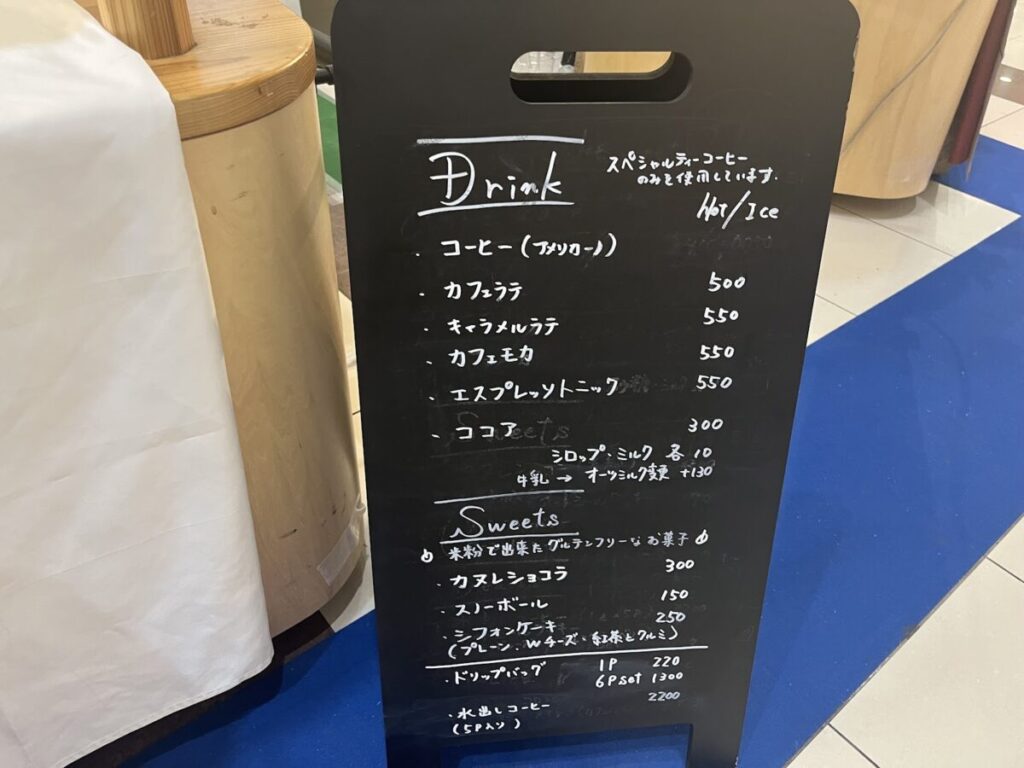 Drink
スペシャルティーコーヒー
のみを使用しています.
Hot/Ice
・コーヒー(アメリカーノ)
・カフェラテ 500
・キャラメルラテ 550
・カフェモカ 550
・エスプレッソトニック 550
・ココア 300
シロップ・ミルク 各10
牛乳→オーツミルク変更 +130
Sweets
米粉で出来たグルテンフリーなお菓子
・カヌレショコラ 300
・スノーボール 150
・シフォンケーキ 250
(プレーン・Wチーズ・紅茶とクルミ)
・ドリップバッグ 1P 220
6Pset 1300
・水出しコーヒー 2200
(5P入り)